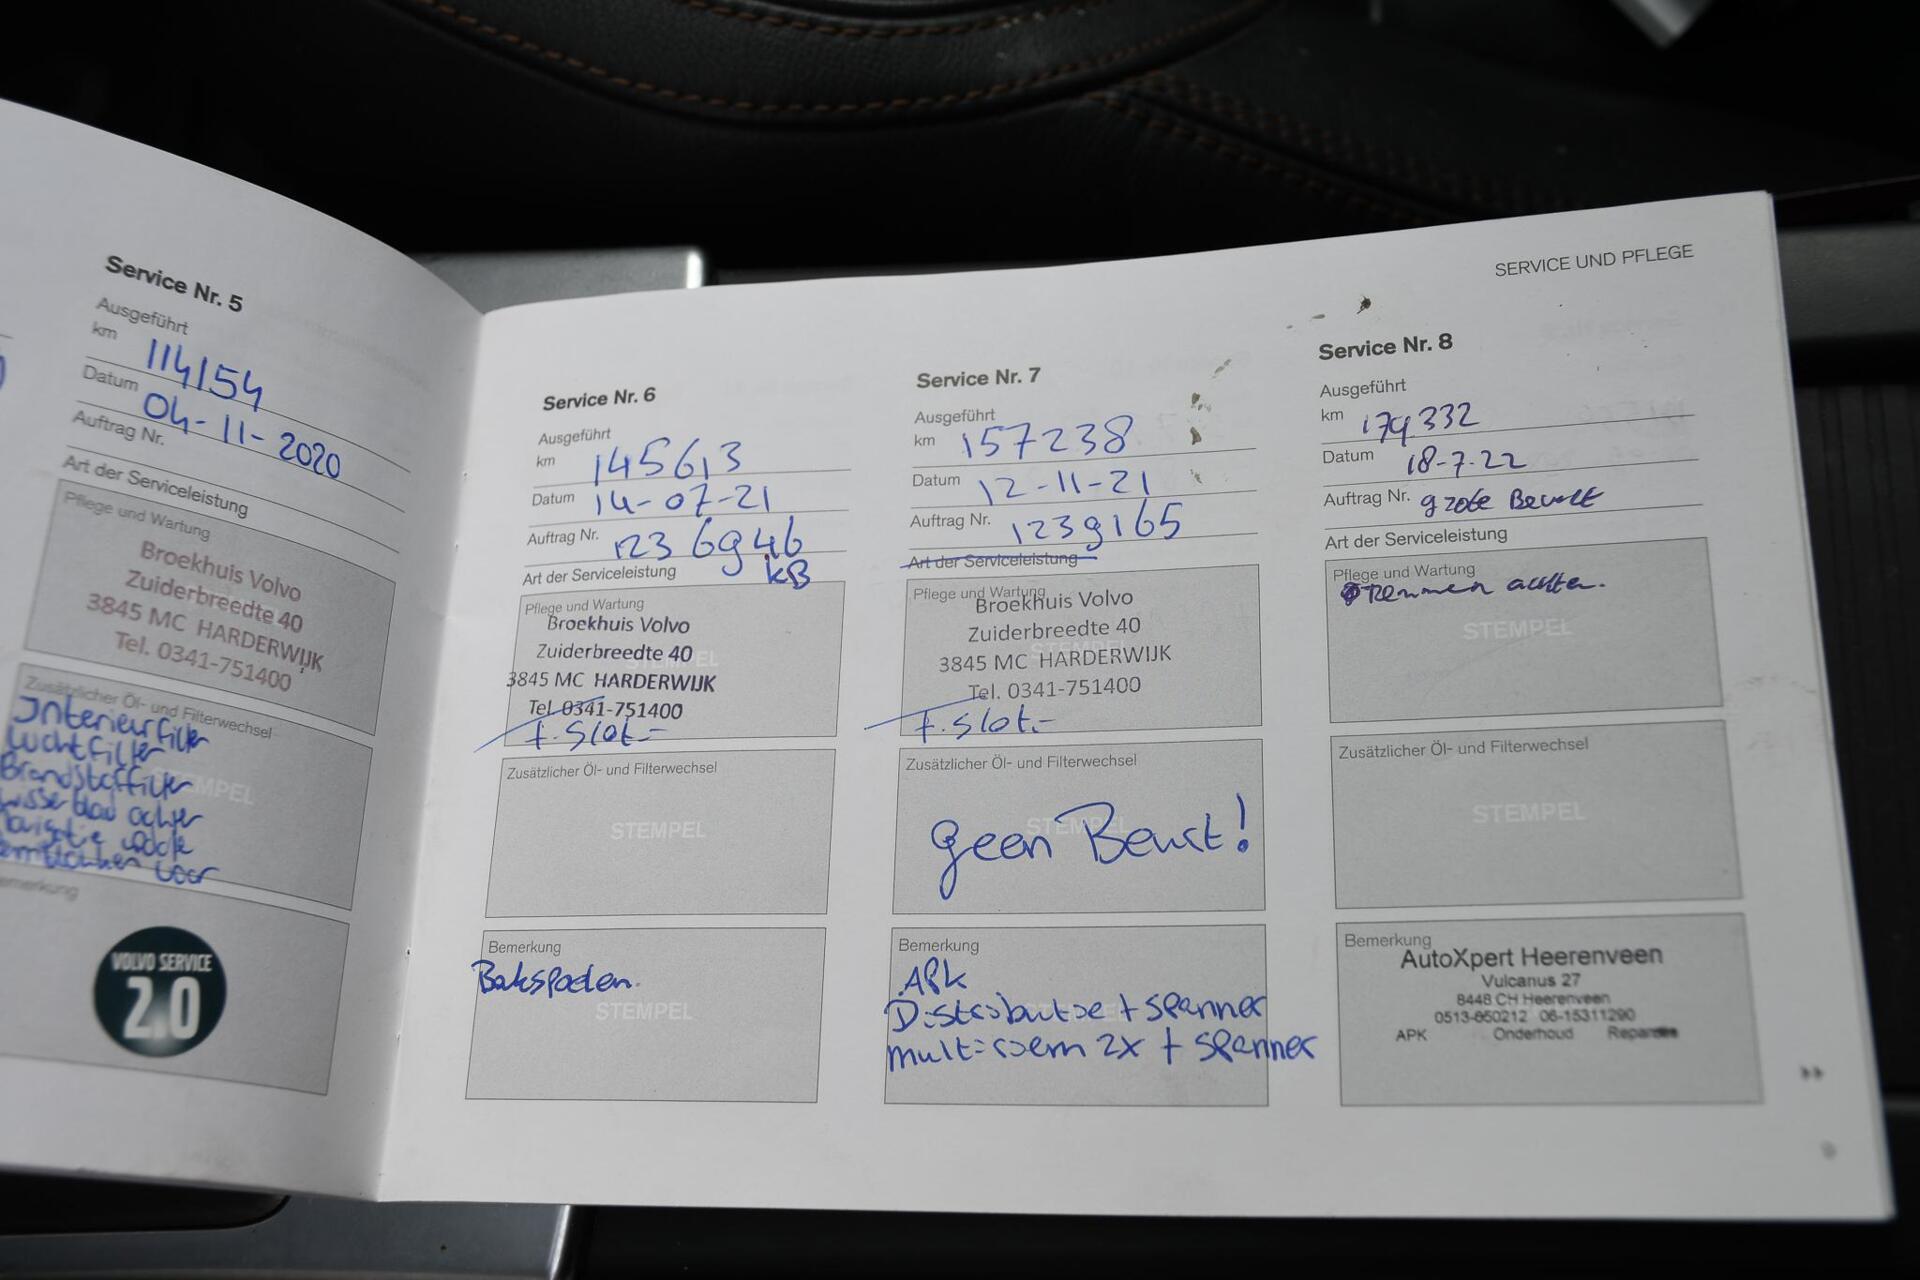 SERVICE UND PFLEGE
Service Nr. 5
Ausgeführt
km 114154
Datum 04-11-2020
Auftrag Nr.
Art der Serviceleistung
Pflege und Wartung
Broekhuis Volvo
Zuiderbreedte 40
3845 MC HARDERWIJK
Tel. 0341-751400
Zusätzlicher Öl- und Filterwechsel
STEMPEL
Interieurfilter
Luchtfilter
Brandstoffilter
wisserblad achter
navigatie update
voor
Bemerkung
VOLVO SERVICE
2.0
Service Nr. 6
Ausgeführt
km 145613
Datum 14-07-21
Auftrag Nr. 1236946
KB
Art der Serviceleistung
Pflege und Wartung
STEMPEL
Broekhuis Volvo
Zuiderbreedte 40
3845 MC HARDERWIJK
Tel. 0341-751400
f. Slot.-
Zusätzlicher Öl- und Filterwechsel
STEMPEL
Bemerkung
Bakspoelen.
STEMPEL
Service Nr. 7
Ausgeführt
km 157238
Datum 12-11-21
Auftrag Nr. 1239165
Art der Serviceleistung
Pflege und Wartung
Broekhuis Volvo
Zuiderbreedte 40
3845 MC HARDERWIJK
Tel. 0341-751400
f. Slot.-
Zusätzlicher Öl- und Filterwechsel
STEMPEL
geen Beurt!
Bemerkung
APK
Distributie + spanner
multiriem 2x + spanner
Service Nr. 8
Ausgeführt
km 179332
Datum 18-7-22
Auftrag Nr. grote Beurt
Art der Serviceleistung
Pflege und Wartung
Remmen achter.
STEMPEL
Zusätzlicher Öl- und Filterwechsel
STEMPEL
Bemerkung
AutoXpert Heerenveen
Vulcanus 27
8448 CH Heerenveen
0513-650212 06-15311290
APK Onderhoud